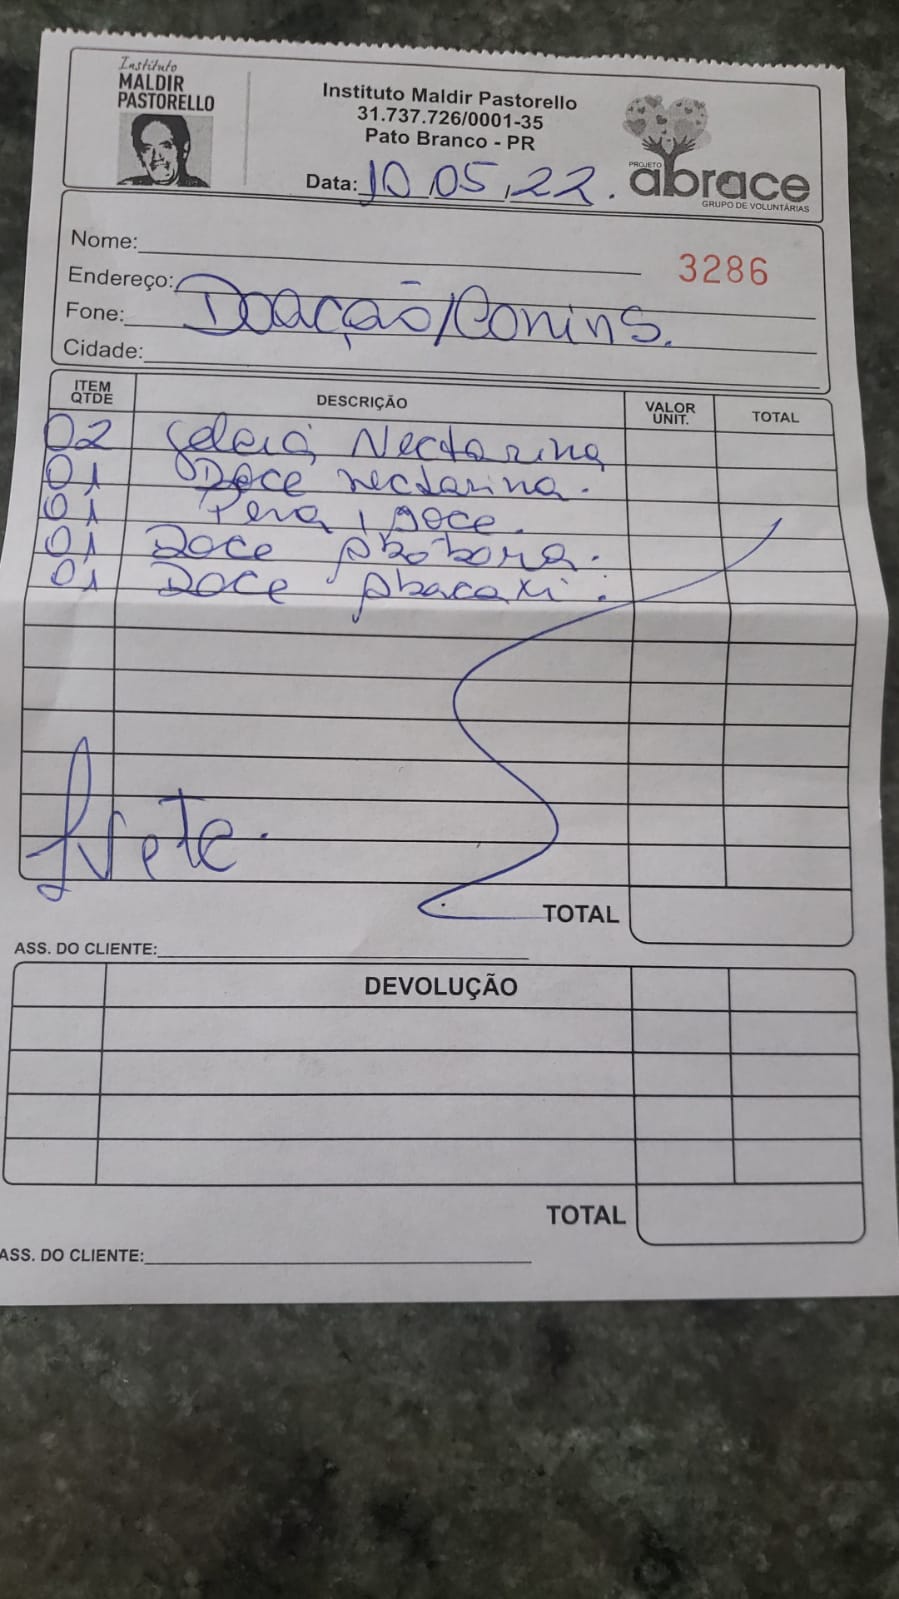 Instituto
MALDIR
PASTORELLO
Instituto Maldir Pastorello
31.737.726/0001-35
Pato Branco - PR
Data: 10.05.22.
PROJETO
abrace
GRUPO DE VOLUNTÁRIAS
Nome:
3286
Endereço:
Doação/Conins.
Fone:
Cidade:
ITEM QTDE DESCRIÇÃO VALOR UNIT. TOTAL
02 Geleia Nectarina
01 Doce nectarina.
01 Pera, doce.
01 Doce Abóbora.
01 Doce Abacaxi.
Ivete.
TOTAL
ASS. DO CLIENTE:
DEVOLUÇÃO
TOTAL
ASS. DO CLIENTE: